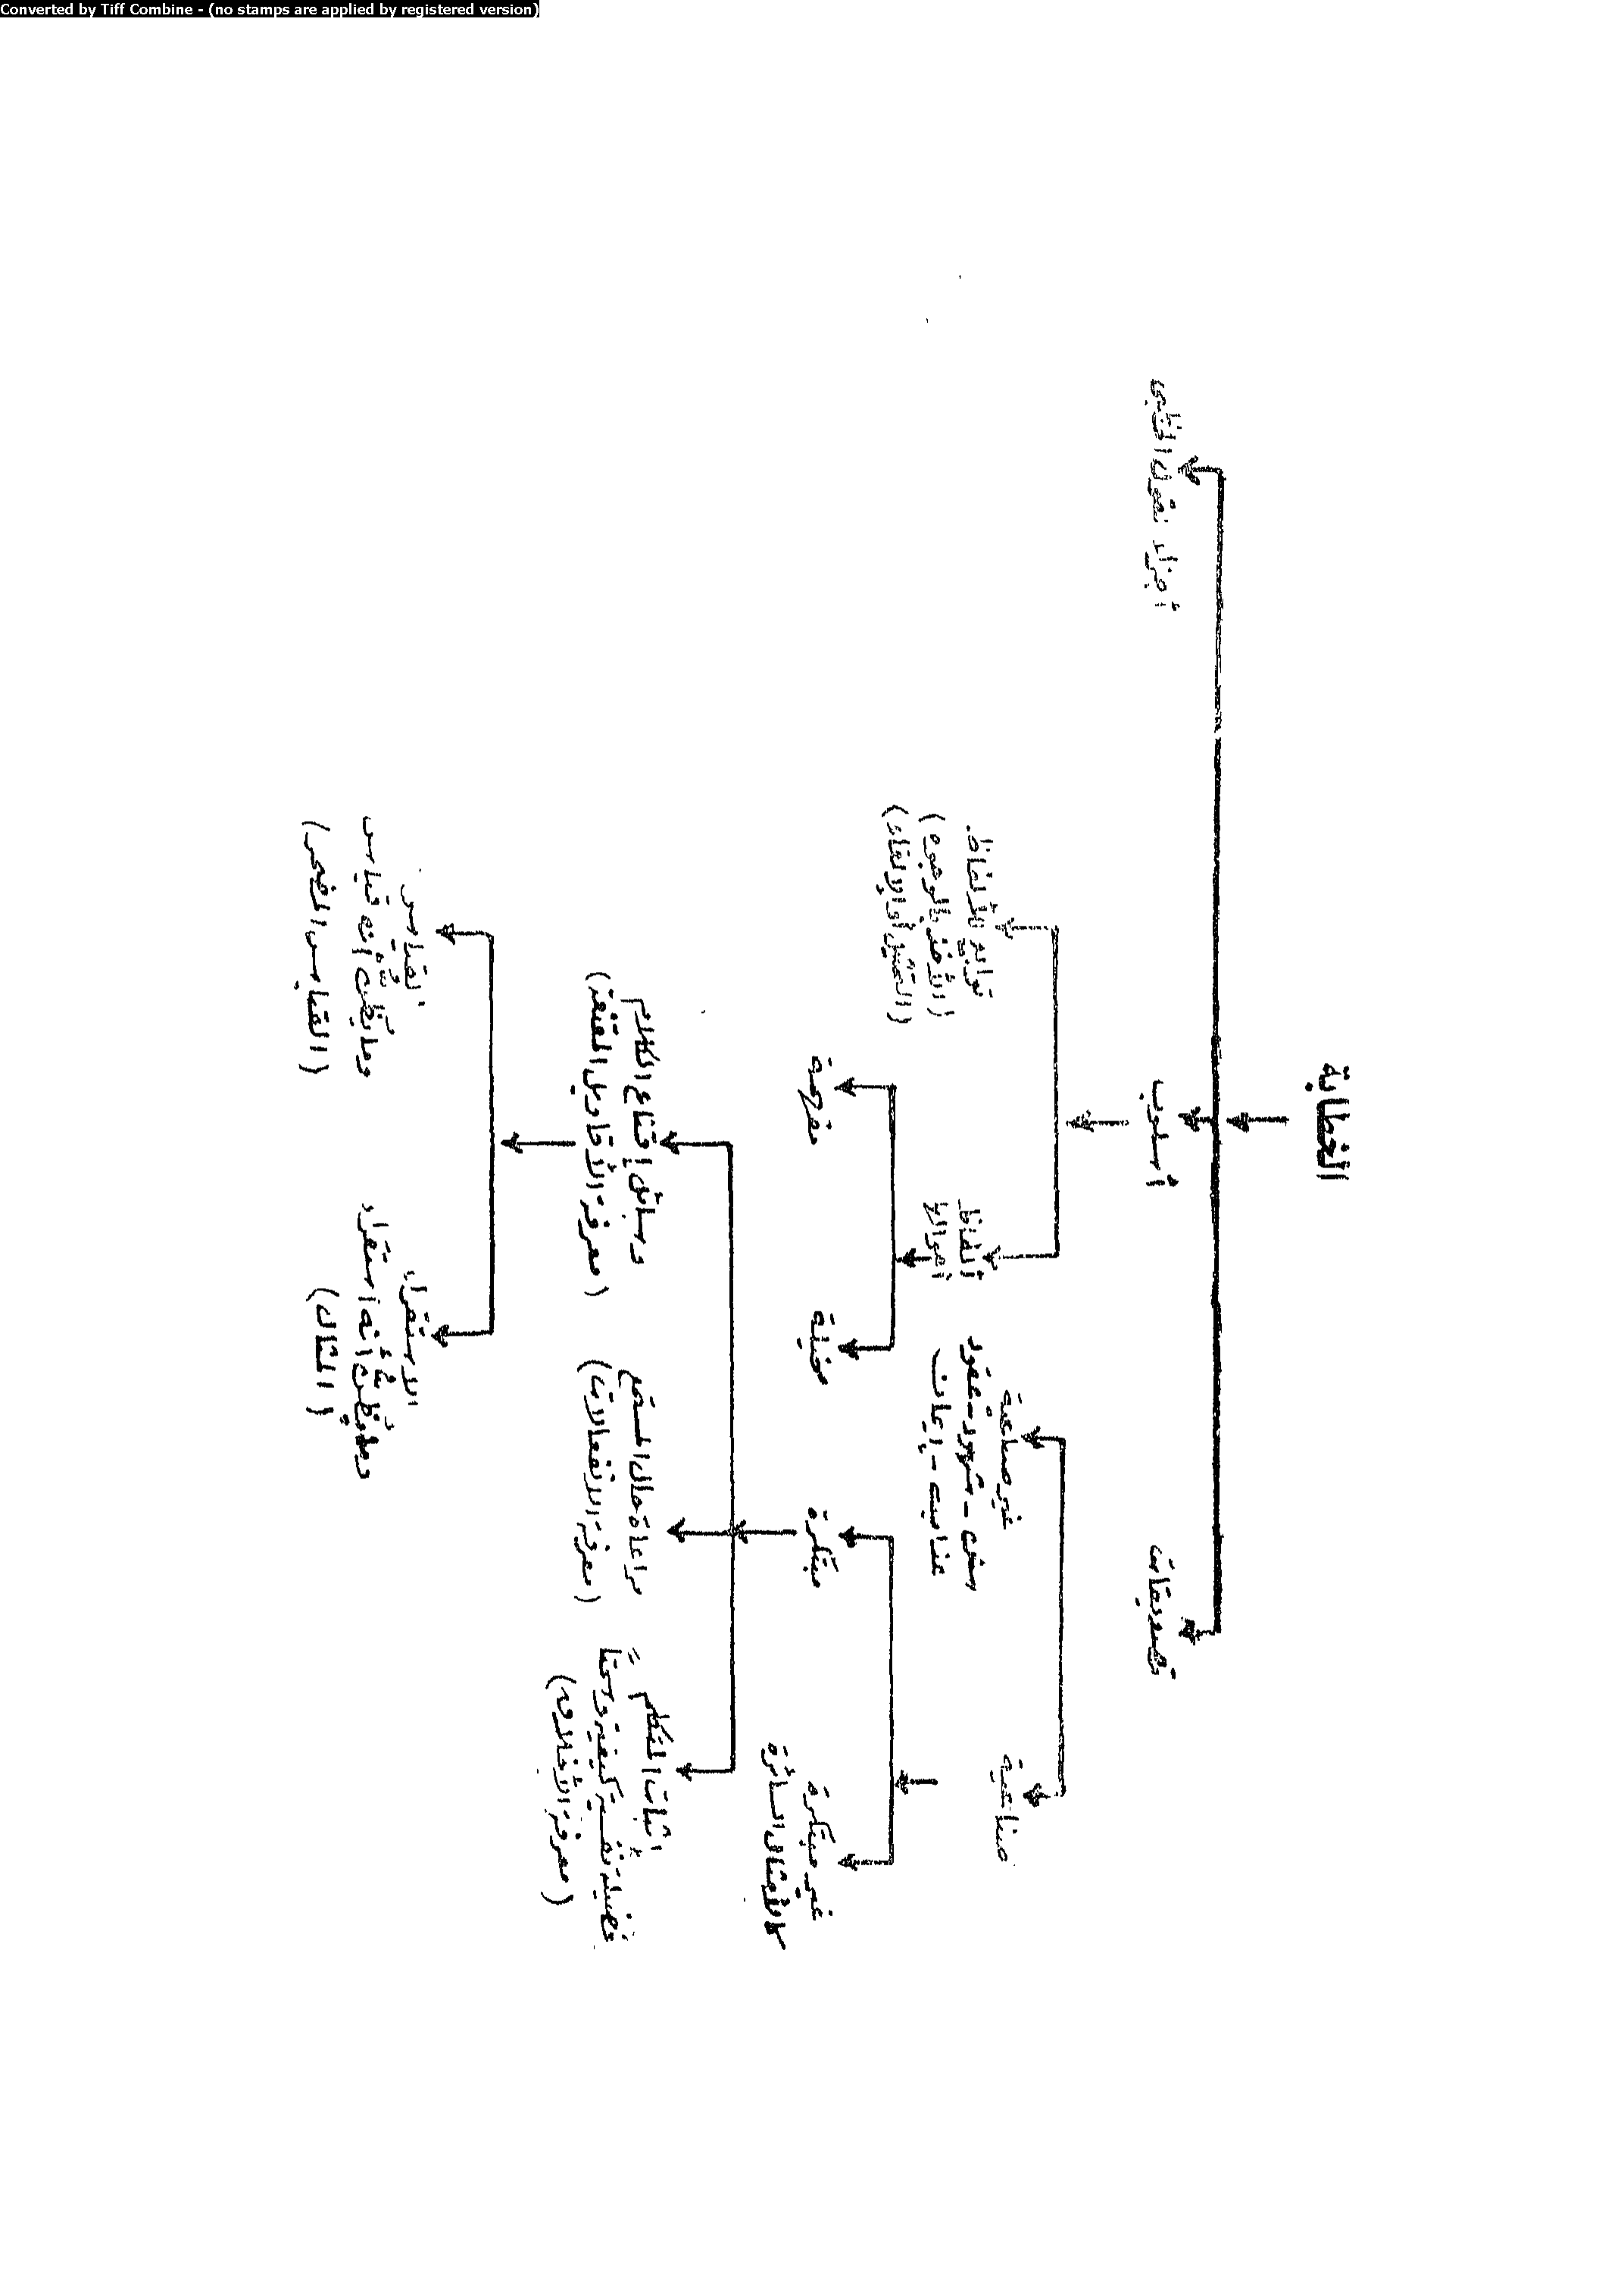 Converted by Tiff Combine - (no stamps are applied by registered version)
الخطابة
تصديقات
أسلوب
أجزاء القول الخطبى
صناعية
غير صناعية
سنن - شهود - عقود
عذاب - إيمان
ألفاظ
أحوالها
توابع للألفاظ
(الأخذ بالوجوه)
(التمثيل أو الإلقاء)
غير مبتكرة
كالأمثال السائرة
مبتكرة
مخيلة
مفهمة
إثبات المتكلم
فضيلة نفسه كيفية وسمتاً
(معرفة الأخلاق)
مراعاة حال المستمع
(معرفة الانفعالات)
وسائل إقناع الكلام
(معرفة الأقاويل المقنعة)
الاستقراء
وما يُظن أنه استقراء
(المثال)
القياس
وما يُظن أنه قياس
(القياس المضمر)